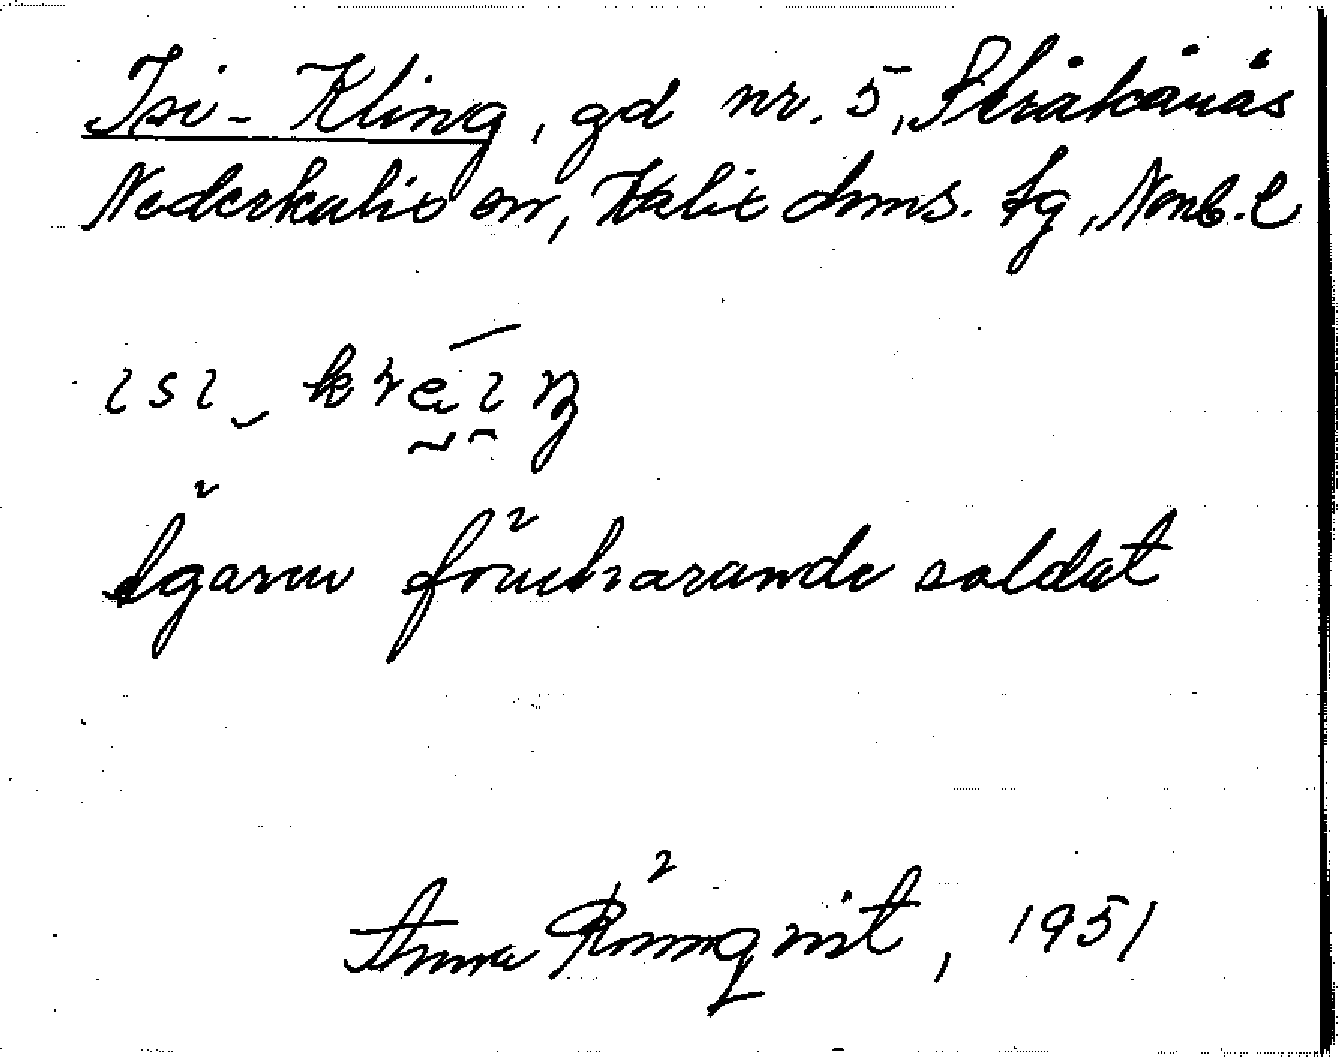 Isi-Kling, gd nr. 5, Stråkanäs
Nederkalix sn, Kalix dms. tg, Norrb. l
ısı kreıŋ
Ägaren förutvarande soldat
Anna Rönnqvist, 1951